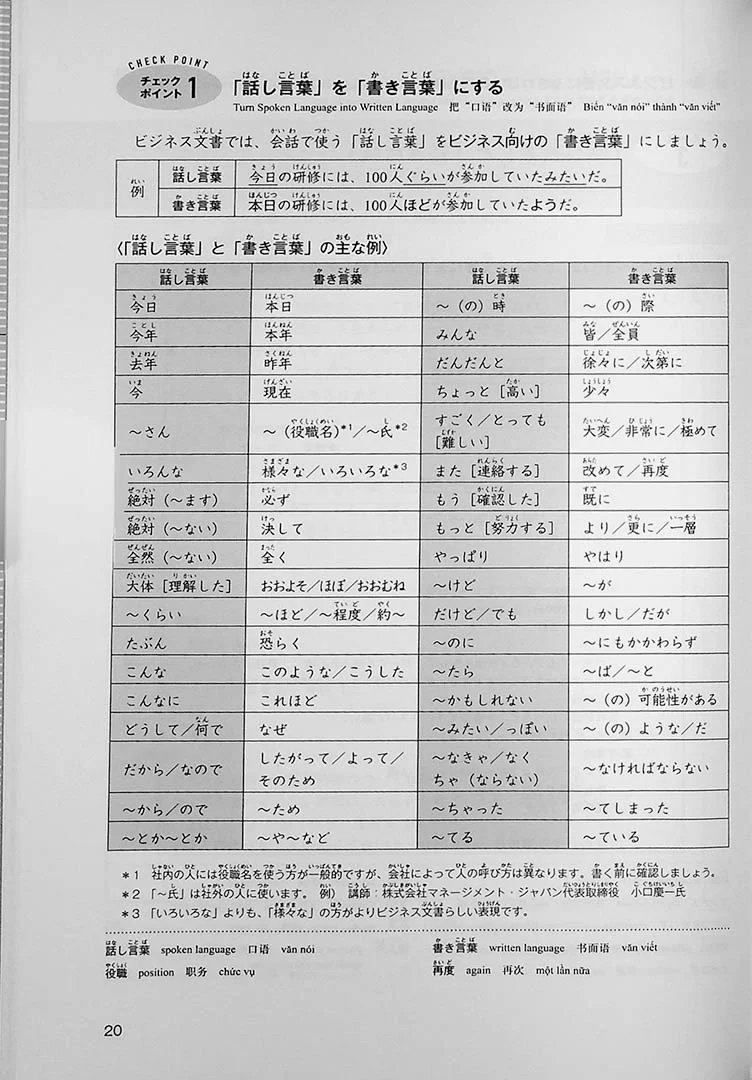 CHECK POINT
チェックポイント 1 「話し言葉」を「書き言葉」にする
Turn Spoken Language into Written Language 把“口语”改为“书面语” Biến “văn nói” thành “văn viết”
ビジネス文書では、会話で使う「話し言葉」をビジネス向けの「書き言葉」にしましょう。
例 話し言葉 今日の研修には、100人ぐらいが参加していたみたいだ。
書き言葉 本日の研修には、100人ほどが参加していたようだ。
〈「話し言葉」と「書き言葉」の主な例〉
話し言葉 書き言葉 話し言葉 書き言葉
今日 本日 〜(の)時 〜(の)際
今年 本年 みんな 皆/全員
去年 昨年 だんだんと 徐々に/次第に
今 現在 ちょっと[高い] 少々
〜さん 〜(役職名)*1/〜氏*2 すごく/とっても[難しい] 大変/非常に/極めて
いろんな 様々な/いろいろな*3 また[連絡する] 改めて/再度
絶対(〜ます) 必ず もう[確認した] 既に
絶対(〜ない) 決して もっと[努力する] より/更に/一層
全然(〜ない) 全く やっぱり やはり
大体[理解した] おおよそ/ほぼ/おおむね 〜けど 〜が
〜くらい 〜ほど/〜程度/約〜 だけど/でも しかし/だが
たぶん 恐らく 〜のに 〜にもかかわらず
こんな このような/こうした 〜たら 〜ば/〜と
こんなに これほど 〜かもしれない 〜(の)可能性がある
どうして/何で なぜ 〜みたい/っぽい 〜(の)ような/だ
だから/なので したがって/よって/そのため 〜なきゃ/なくちゃ(ならない) 〜なければならない
〜から/ので 〜ため 〜ちゃった 〜てしまった
〜とか〜とか 〜や〜など 〜てる 〜ている
*1 社内の人には役職名を使う方が一般的ですが、会社によって人の呼び方は異なります。書く前に確認しましょう。
*2 「〜氏」は社外の人に使います。例) 講師:株式会社マネージメント・ジャパン代表取締役 小口慶一氏
*3 「いろいろな」よりも、「様々な」の方がよりビジネス文書らしい表現です。
話し言葉 spoken language 口语 văn nói 書き言葉 written language 书面语 văn viết
役職 position 职务 chức vụ 再度 again 再次 một lần nữa
20